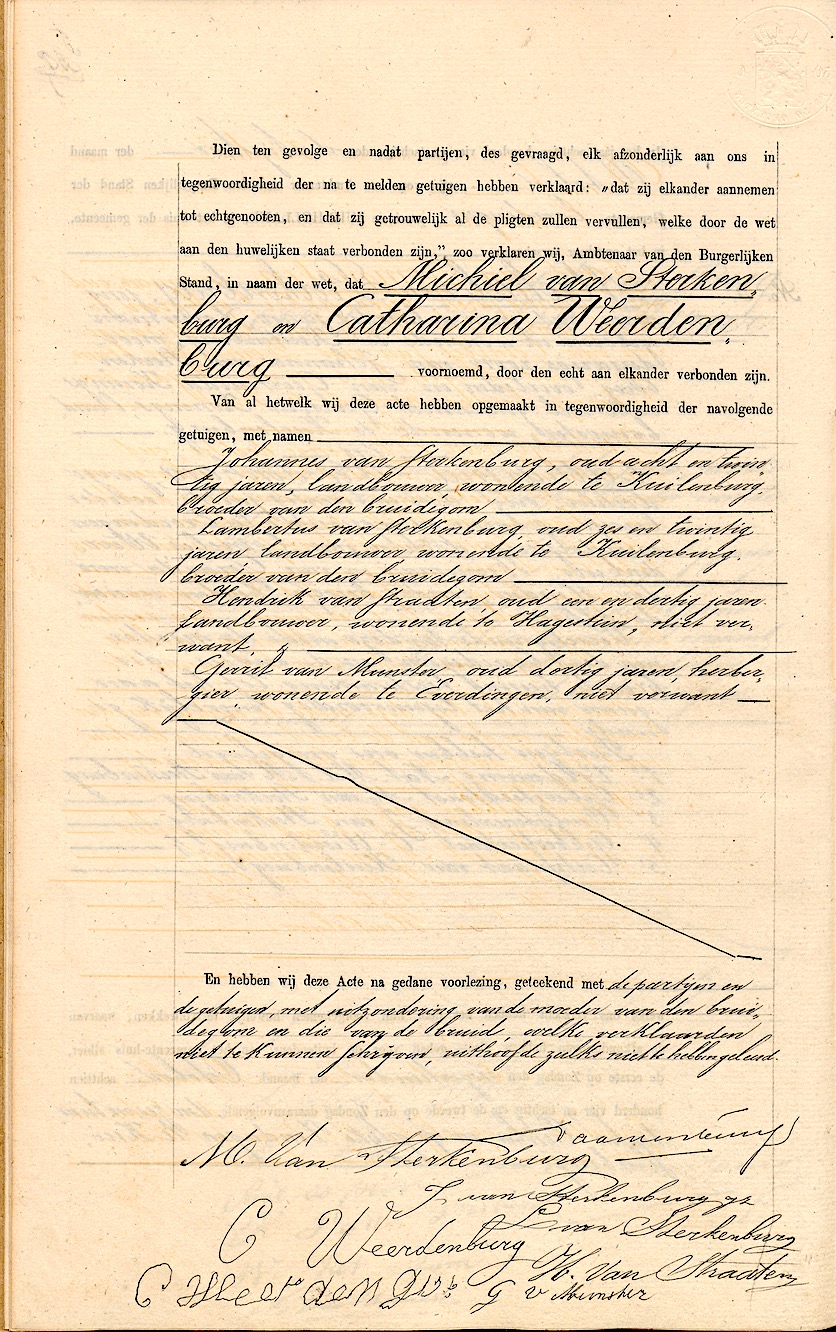 Dien ten gevolge en nadat partijen, des gevraagd, elk afzonderlijk aan ons in
tegenwoordigheid der na te melden getuigen hebben verklaard: „dat zij elkander aannemen
tot echtgenooten, en dat zij getrouwelijk al de pligten zullen vervullen, welke door de wet
aan den huwelijken staat verbonden zijn,” zoo verklaren wij, Ambtenaar van den Burgerlijken
Stand, in naam der wet, dat Michiel van Sterken„
burg en Catharina Weerden„
burg voornoemd, door den echt aan elkander verbonden zijn.
Van al hetwelk wij deze acte hebben opgemaakt in tegenwoordigheid der navolgende
getuigen, met namen
Johannes van Sterkenburg, oud acht en twin„
tig jaren, landbouwer, wonende te Kuilenburg,
broeder van den bruidegom
Lambertus van Sterkenburg, oud zes en twintig
jaren landbouwer wonende te Kuilenburg,
broeder van den bruidegom
Hendrik van Straaten, oud een en dertig jaren
Landbouwer, wonende te Hagestein, niet ver„
want,
Gerrit van Munster, oud dertig jaren, herber„
gier, wonende te Everdingen, niet verwant
En hebben wij deze Acte na gedane voorlezing, geteekend met de partijen en
de getuigen, met uitzondering van de moeder van den brui„
degom en die van de bruid, welke verklaarden
niet te kunnen schrijven, uithoofde zulks niet te hebben geleerd.
M. Van Sterkenburg
J van Sterkenburg gz
L van Sterkenburg
C Weerdenburg
H. Van Straaten
G v Munster